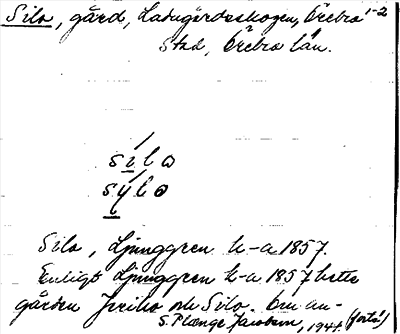 Silo, gård, Ladugårdsskogen, Örebro 1-2
stad, Örebro län.
silo
sylo
Silo, Ljunggren h-a 1857.
Enligt Ljunggren h-a 1857 hette
gården Jeriko och Silo. Om an-
S. Plœnge Jacobson, 1944. (forts.)